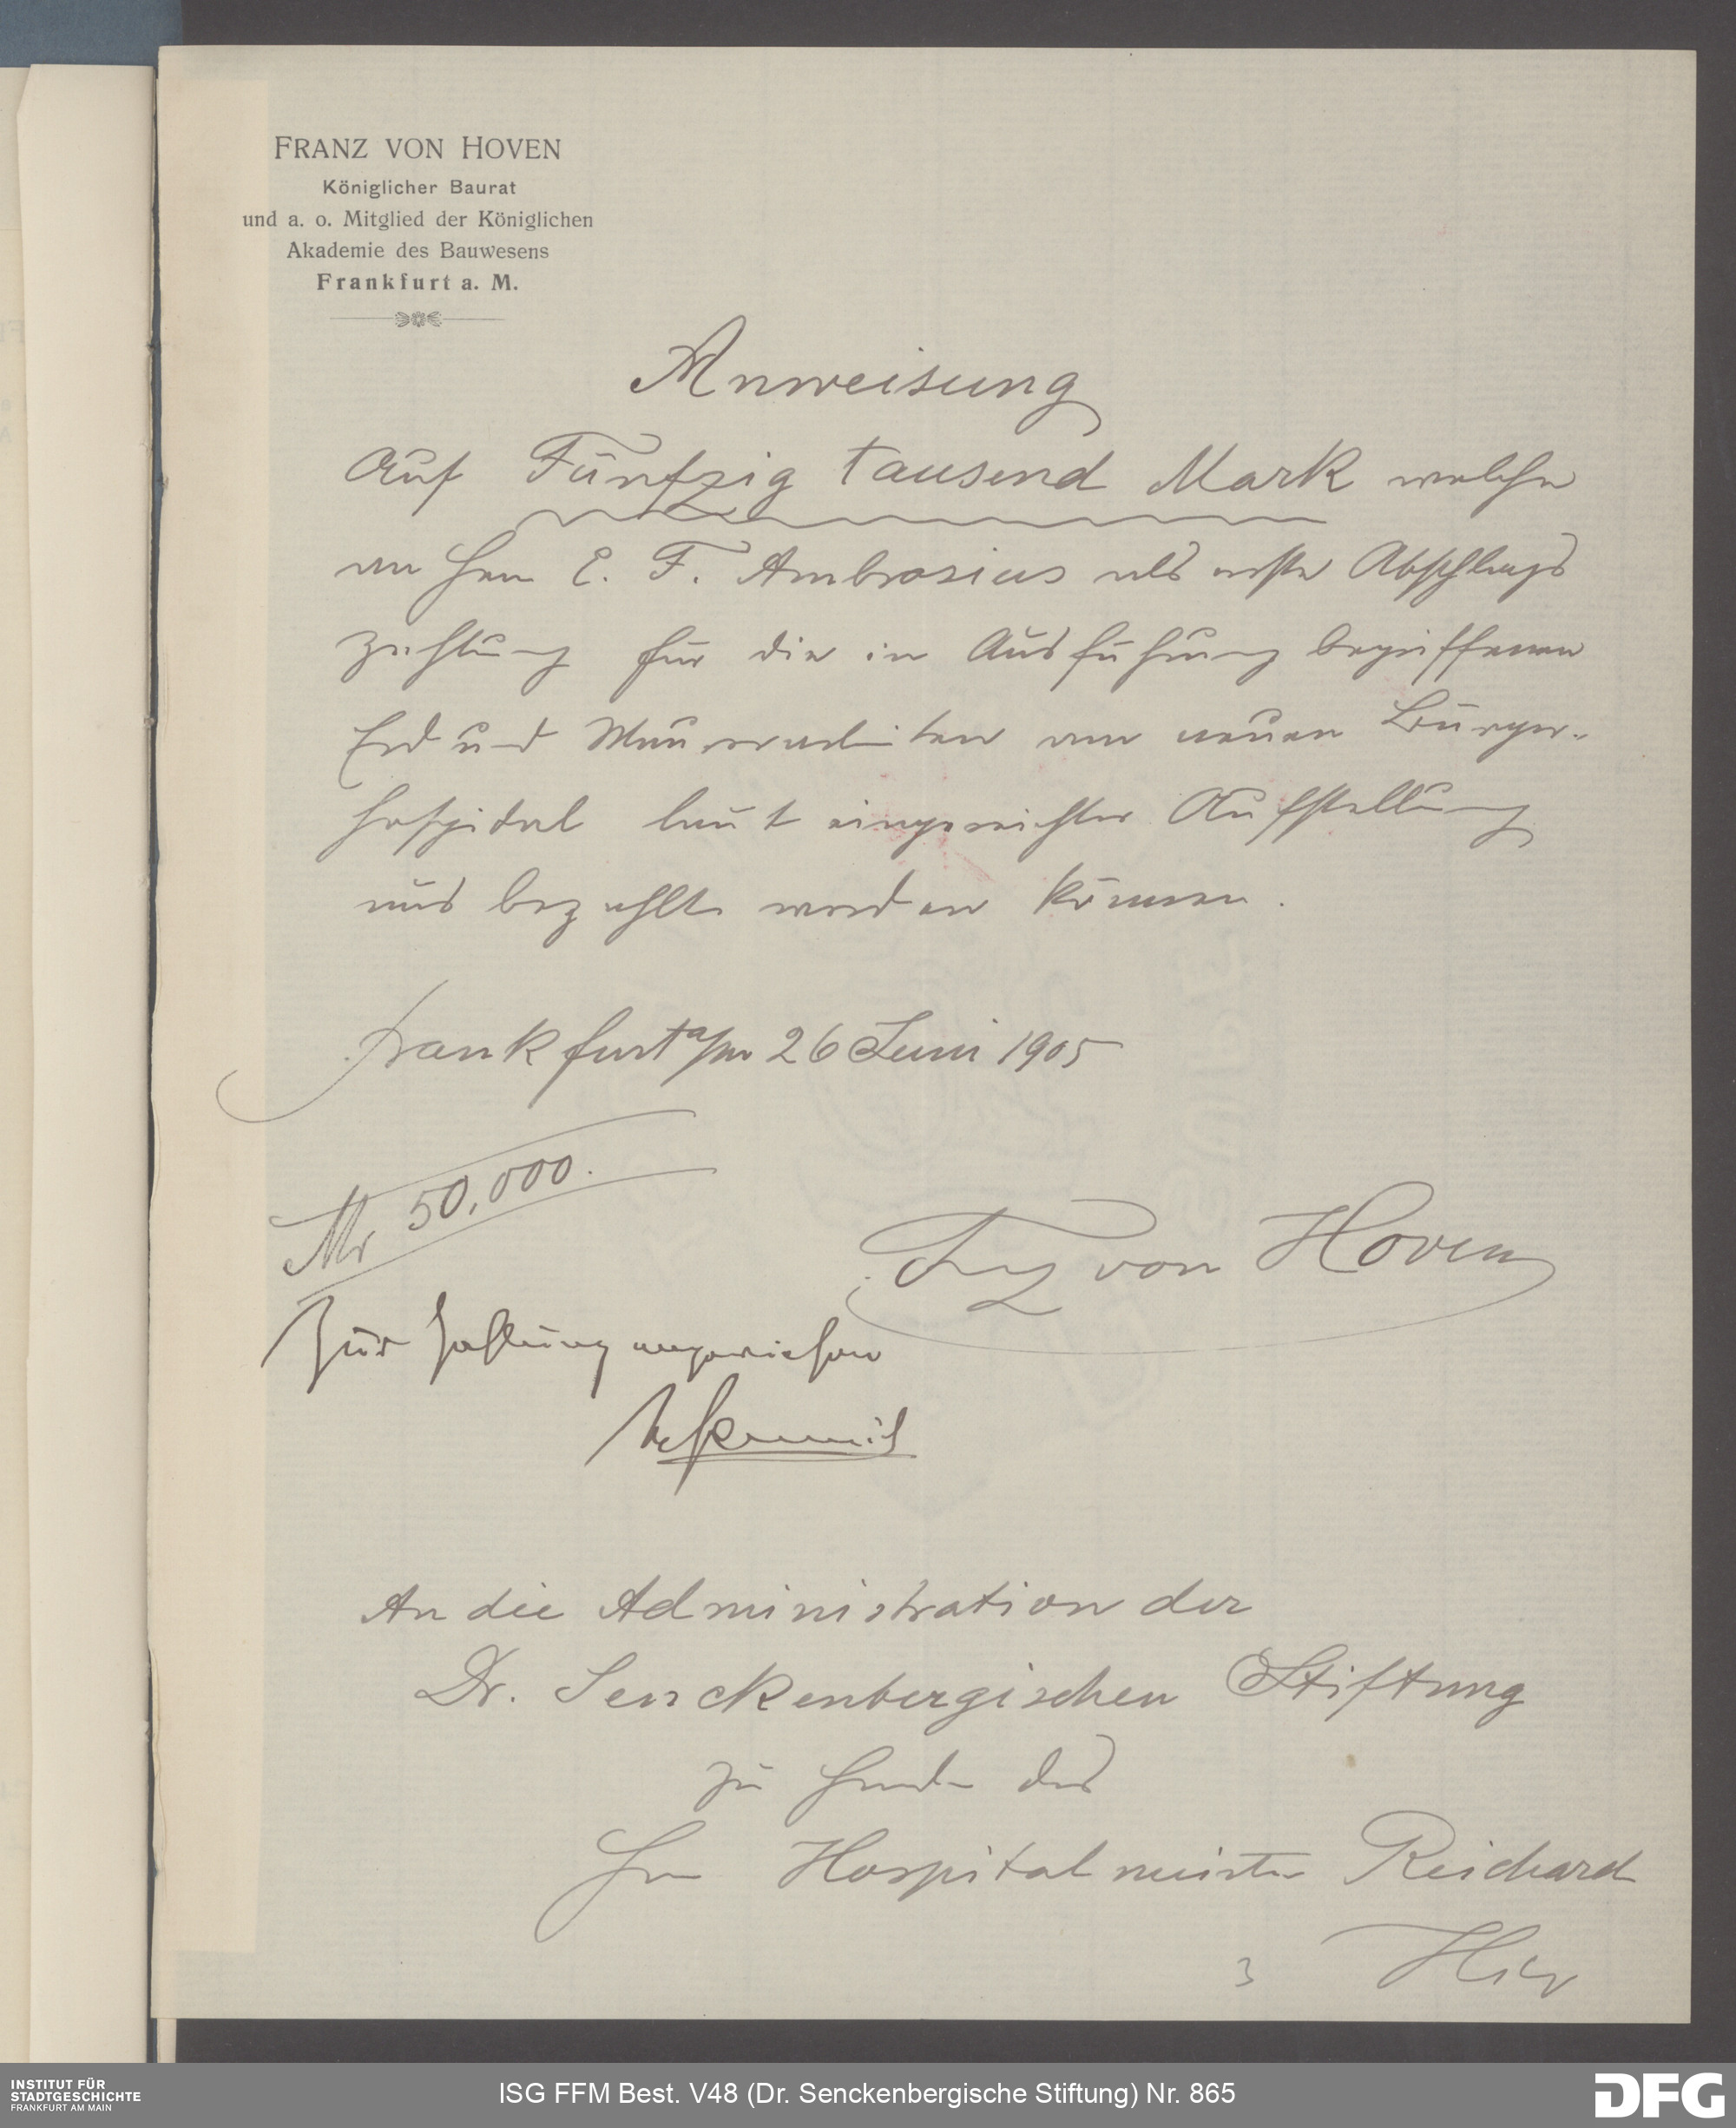 FRANZ VON HOVEN
Königlicher Baurat
und a. o. Mitglied der Königlichen
Akademie des Bauwesens
Frankfurt a. M.
Anweisung
Auf Fünfzig tausend Mark welche
an Herrn E. F. Ambrosius als erste Abschlags
zahlung für die in Ausführung begriffenen
Erd und Maurerarbeiten am neuen Bürger-
hospital laut eingereichter Aufstellung
aus bezahlt werden können.
Frankfurt a/m 26 Juni 1905
Mk 50,000.
Frz von Hoven
Zur Zahlung angewiesen
An die Administration der
Dr. Senckenbergischen Stiftung
zu Hände des
Hrn Hospitalmeister Reichard
3 Hier
INSTITUT FÜR
STADTGESCHICHTE
FRANKFURT AM MAIN
ISG FFM Best. V48 (Dr. Senckenbergische Stiftung) Nr. 865
DFG